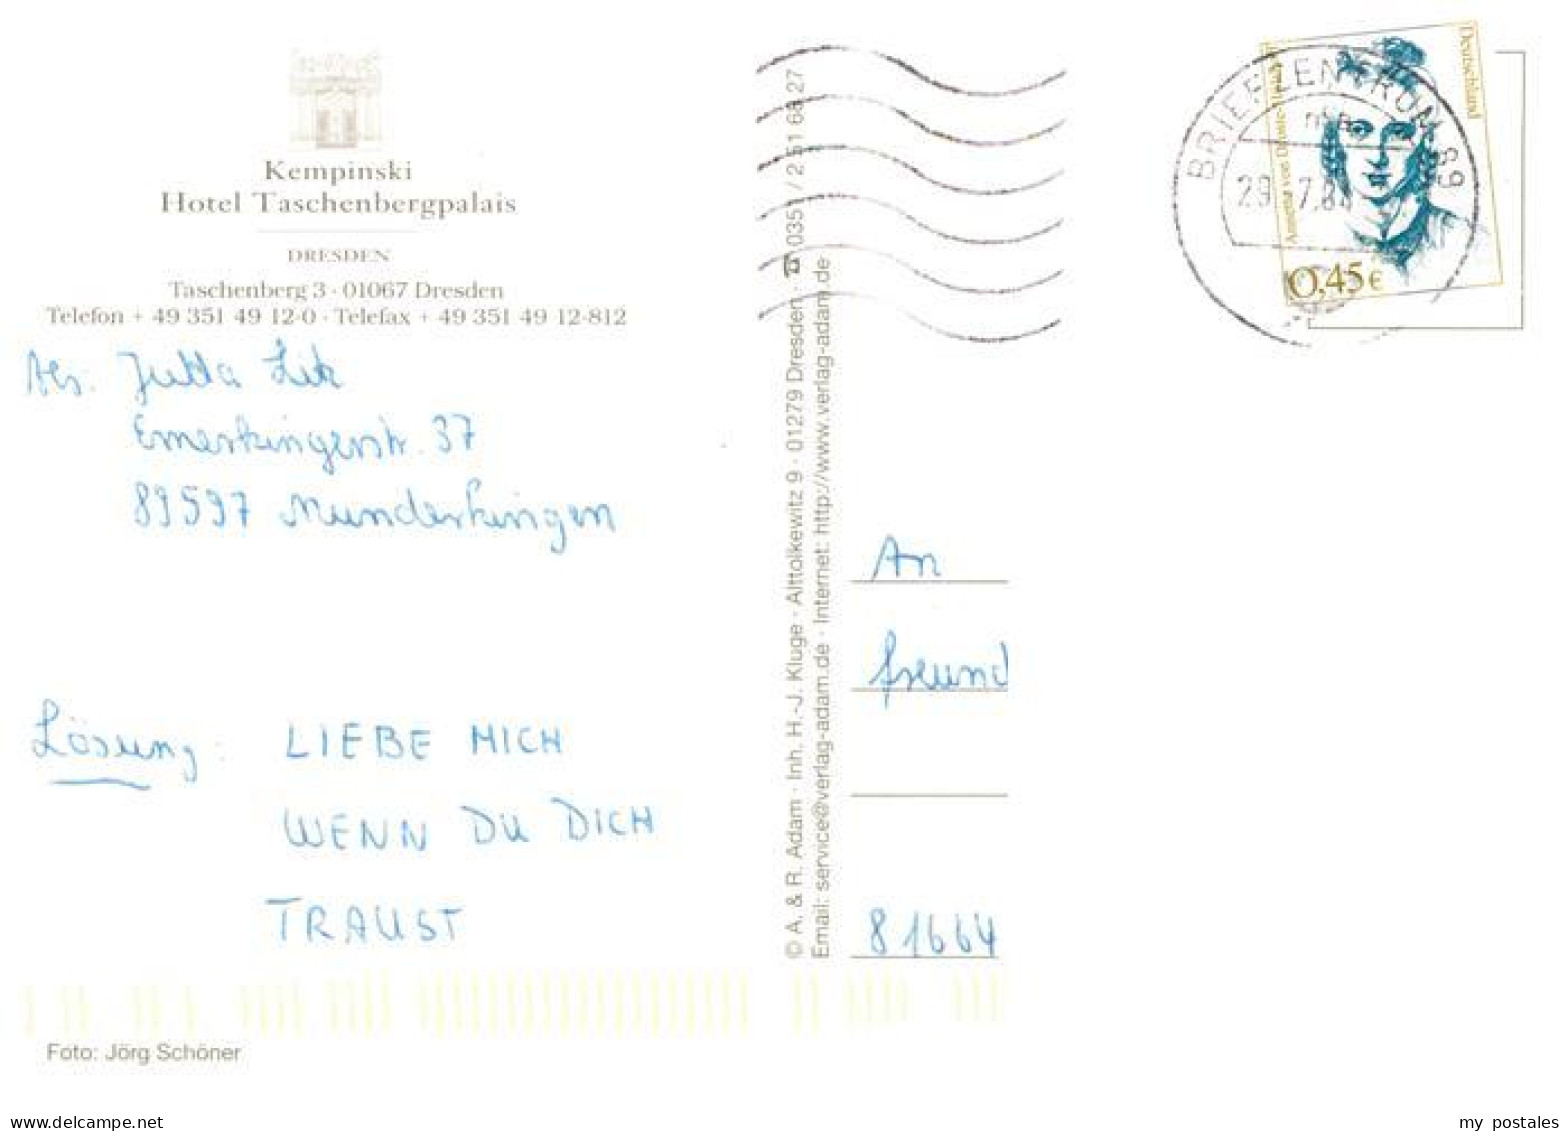 Kempinski
Hotel Taschenbergpalais
DRESDEN
Taschenberg 3 · 01067 Dresden
Telefon + 49 351 49 12-0 · Telefax + 49 351 49 12-812
Abs. Jutta
Emerkingerstr. 37
89597 Munderkingen
Lösung: LIEBE MICH
WENN DU DICH
TRAUST
Foto: Jörg Schöner
© A. & R. Adam · Inh. H.-J. Kluge · Alttolkewitz 9 · 01279 Dresden · ☎ 0351 / 2 51 68 27
Email: service@verlag-adam.de · Internet: http://www.verlag-adam.de
BRIEFZENTRUM 89
29. 7.
Deutschland
Annette von Droste-Hülshoff
0,45€
An
freund
81664
delcampe.net
my_postales